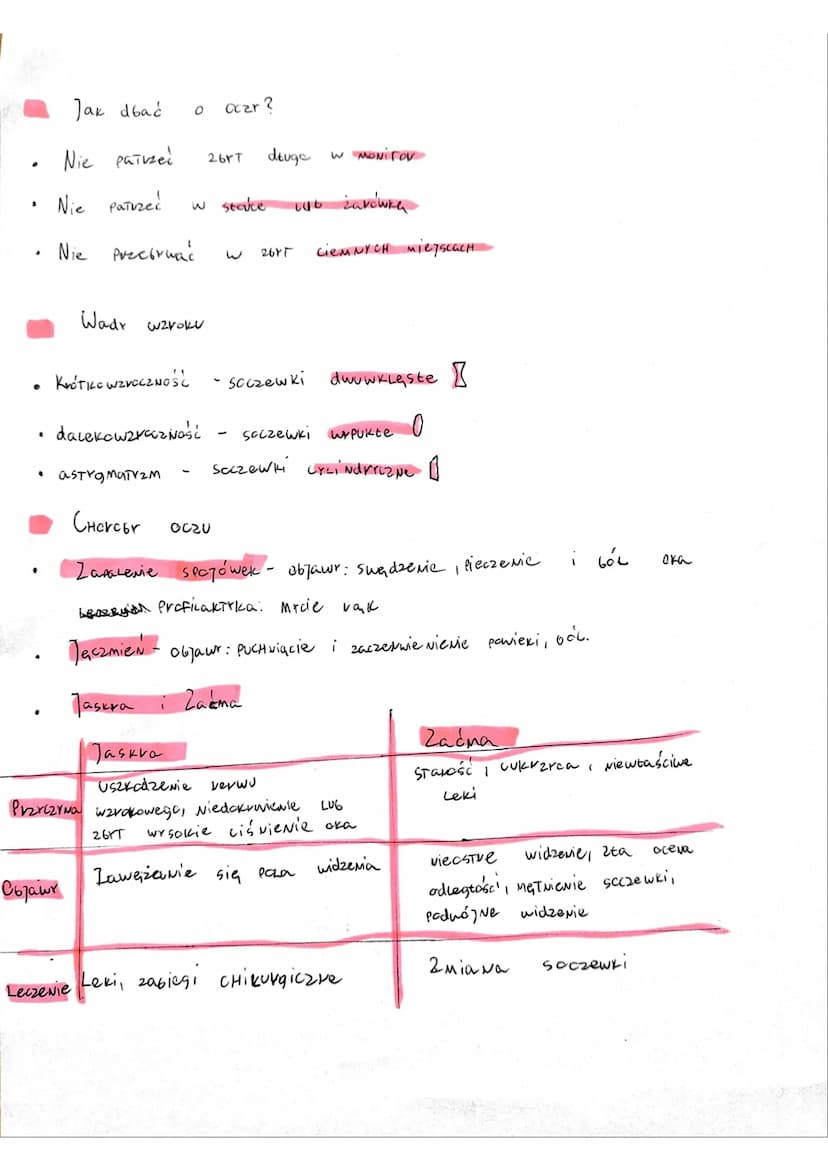 Jak dbać o oczy?
• Nie patrzeć zbyt długo w monitor
• Nie patrzeć w słońce lub żarówkę
• Nie przebywać w zbyt ciemnych miejscach
Wady wzroku
• Krótkowzroczność - soczewki dwuwklęste
• dalekowzroczność - soczewki wypukłe
• astygmatyzm - soczewki cylindryczne
Choroby oczu
• Zapalenie spojówek - objawy: swędzenie, pieczenie i ból oka
Profilaktyka: mycie rąk
• Jęczmień - objawy: puchnięcie i zaczerwienienie powieki, ból.
• Jaskra i Zaćma
Jaskra Zaćma
Przyczyna
uszkodzenie nerwu
wzrokowego, niedokrwienie lub
zbyt wysokie ciśnienie oka
starość, cukrzyca, niewłaściwe
leki
Objawy
Zawężanie się pola widzenia
nieostre widzenie, zła ocena
odległości, mętnienie soczewki,
podwójne widzenie
Leczenie
Leki, zabiegi chirurgiczne
Zmiana soczewki